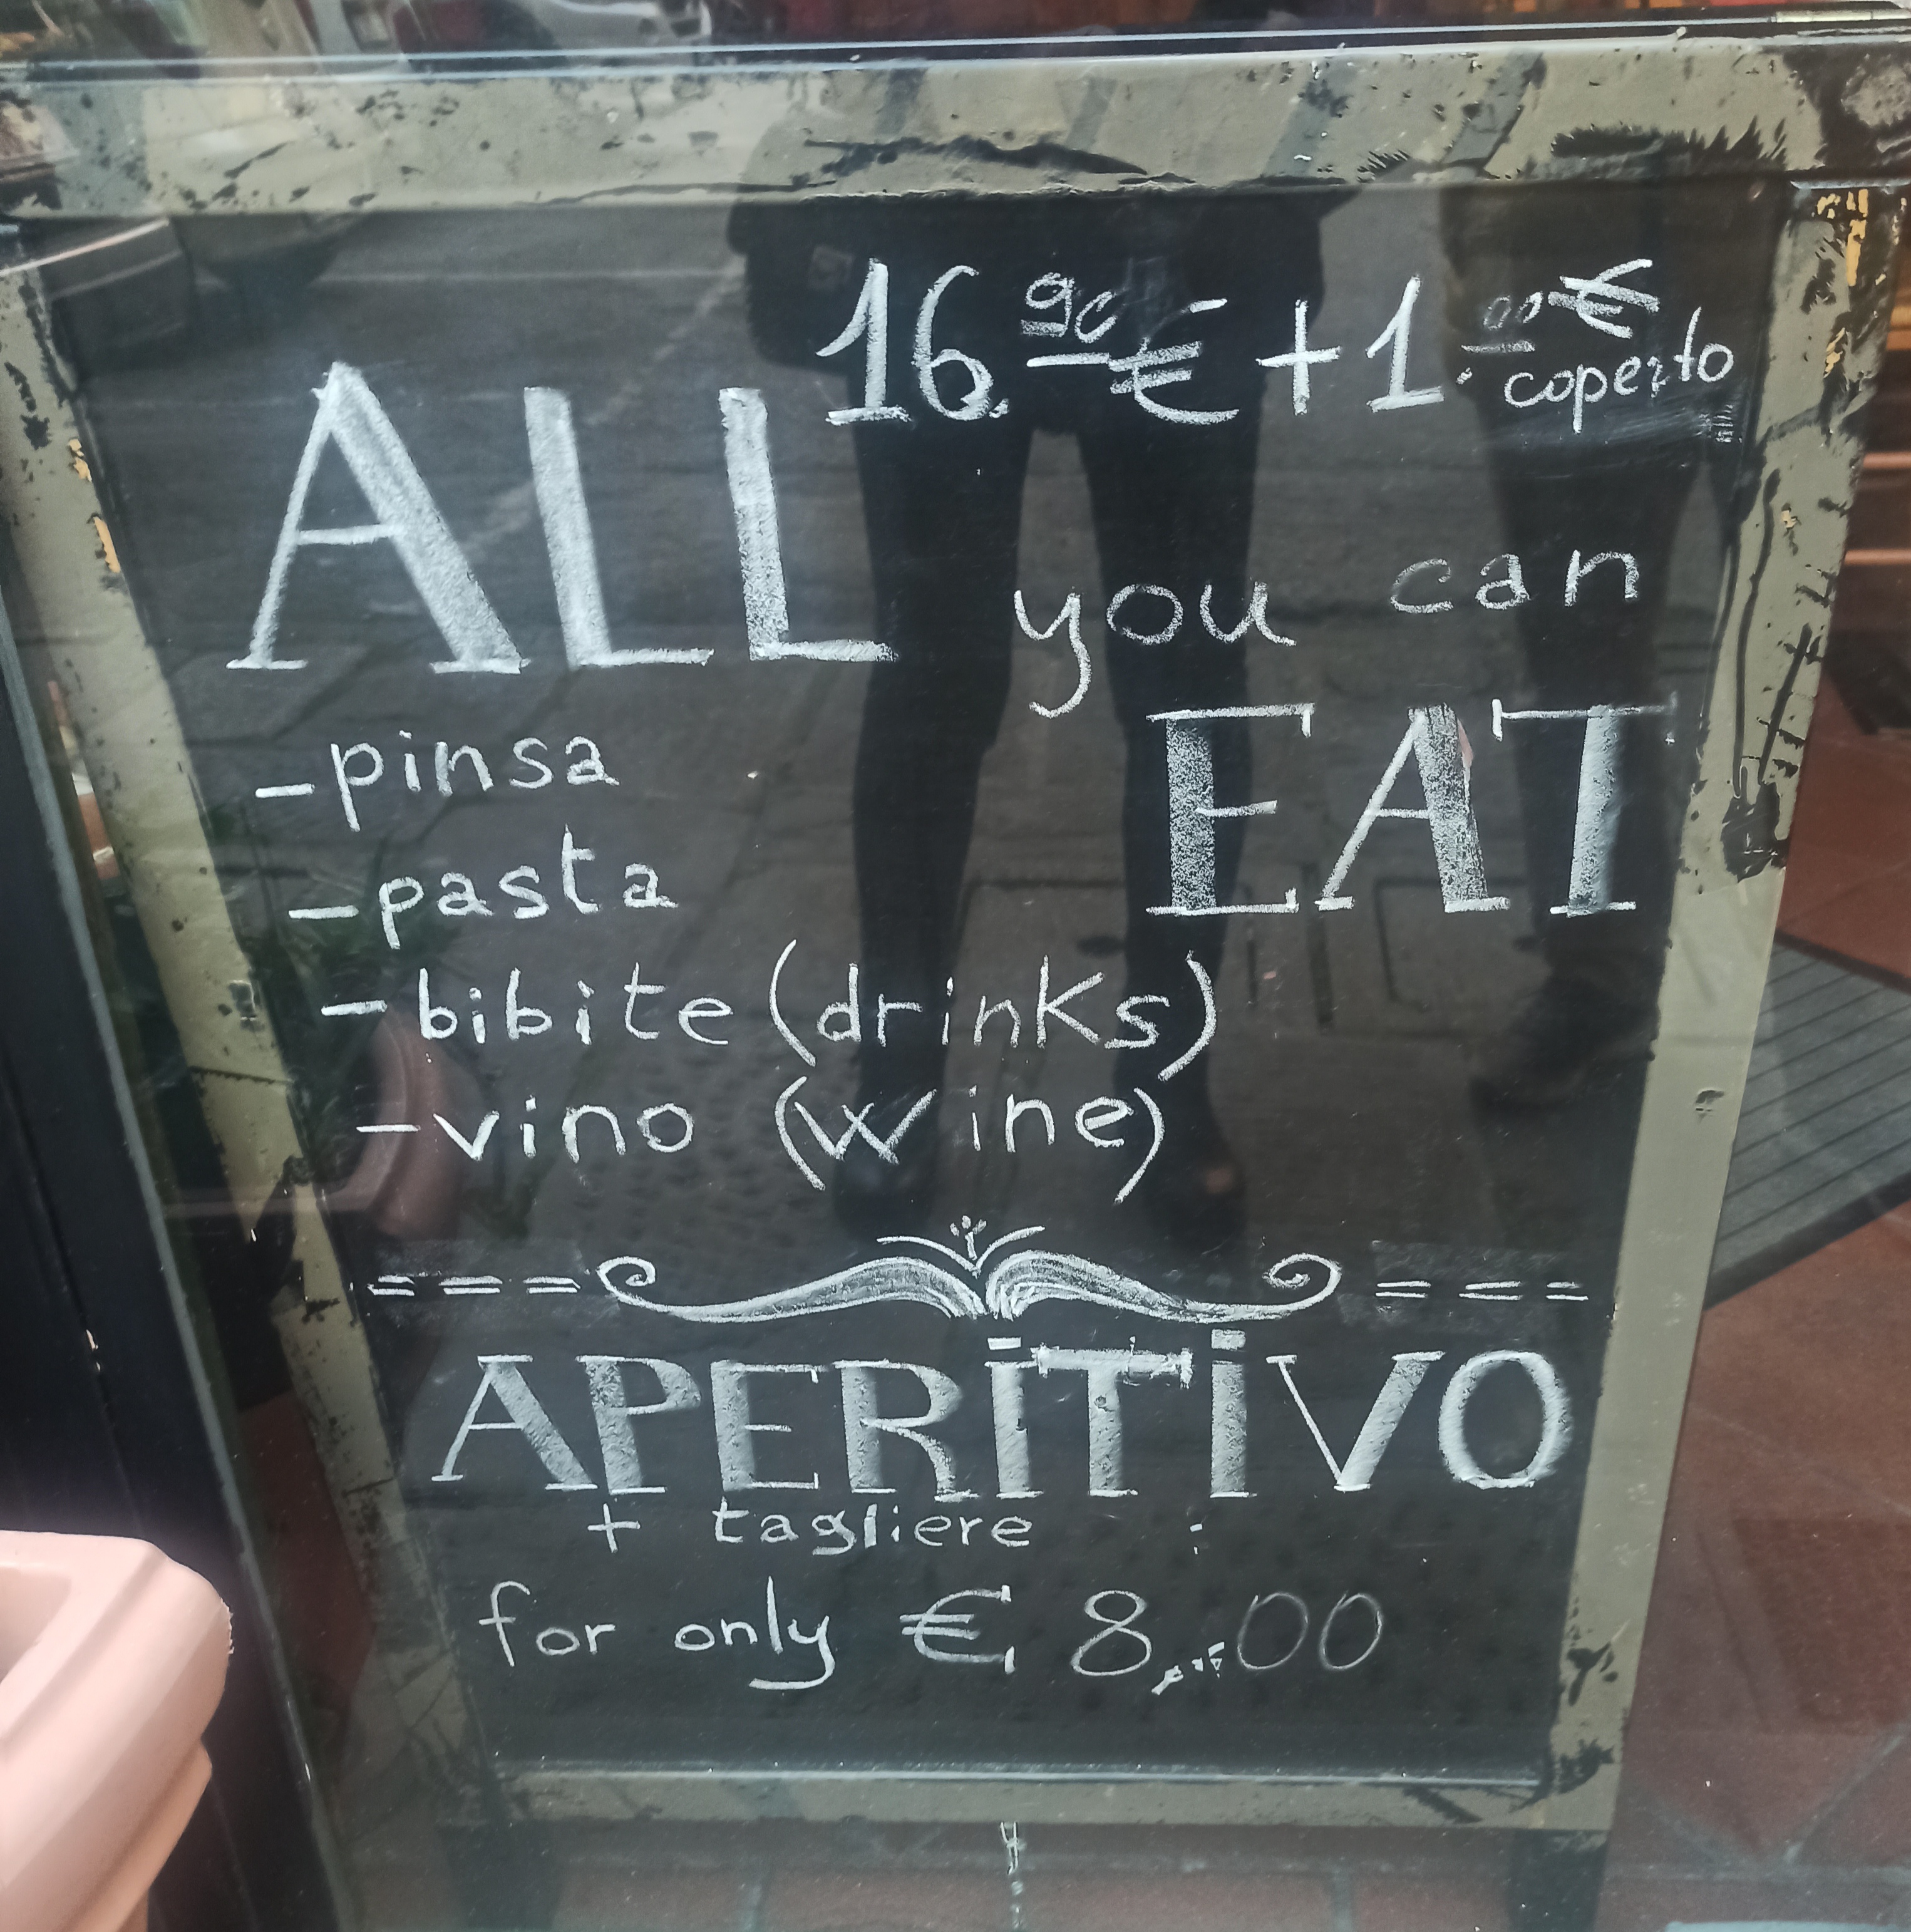 16.90€ + 1.00€
coperto
ALL you can
EAT
-pinsa
-pasta
-bibite (drinks)
-vino (wine)
APERiTiVO
+ tagliere :
for only € 8,00